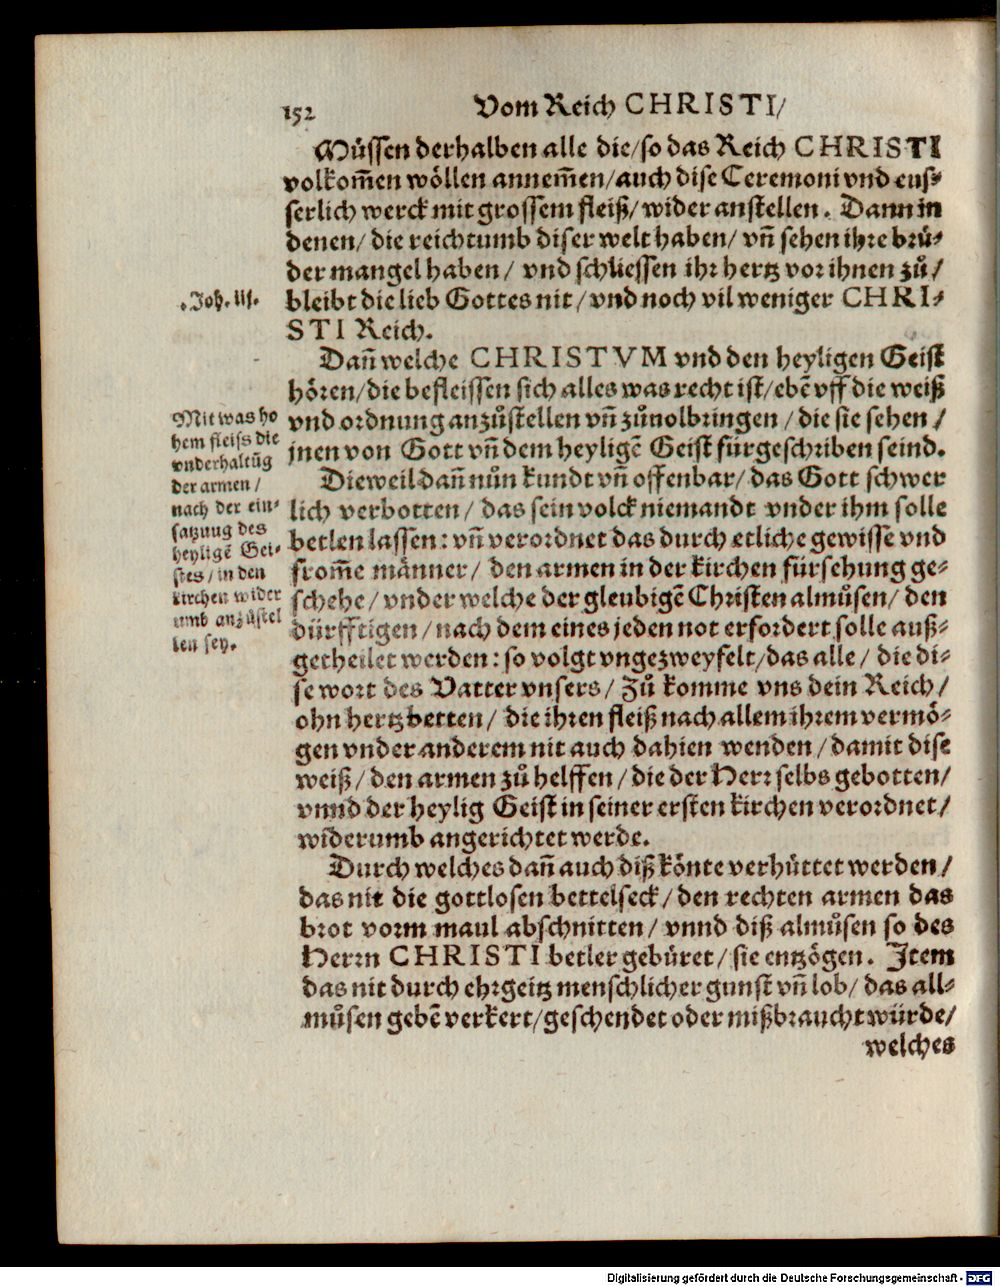 152
Vom Reich CHRISTI/
Müssen derhalben alle die/so das Reich CHRISTI
volkom̄en wöllen annem̄en/auch dise Ceremoni vnd eus⸗
serlich werck mit grossem fleiß/wider anstellen. Dann in
denen/die reichtumb diser welt haben/ vn̄ sehen ihre brü⸗
der mangel haben/ vnd schliessen ihr hertz vor ihnen zů/
.Joh. iij.
bleibt die lieb Gottes nit/vnd noch vil weniger CHRI⸗
STI Reich.
Dan̄ welche CHRISTVM vnd den heyligen Geist
hören/die befleissen sich alles was recht ist/ebē vff die weiß
vnd ordnung anzůstellen vn̄ zůuolbringen /die sie sehen/
jnen von Gott vn̄ dem heyligē Geist fürgeschriben seind.
Mit was ho
hem fleiss die
vnderhaltūg
der armen/
nach der ein⸗
satzuug des
heyligē Gei⸗
stes/in den
kirchen wider
umb anzůstel
len sey.
Dieweil dan̄ nůn kundt vn̄ offenbar/das Gott schwer
lich verbotten/ das sein volck niemandt vnder ihm solle
betlen lassen: vn̄ verordnet das durch etliche gewisse vnd
from̄e männer/ den armen in der kirchen fürsehung ge⸗
schehe/vnder welche der gleubigē Christen almůsen/den
dürfftigen/nach dem eines jeden not erfordert solle auß⸗
getheilet werden: so volgt vngezweyfelt/das alle/ die di⸗
se wort des Vatter vnsers/ Zů komme vns dein Reich/
ohn hertz betten/ die ihren fleiß nach allem ihrem vermö⸗
gen vnder anderem nit auch dahien wenden/damit dise
weiß/den armen zů helffen/die der Herr selbs gebotten/
vnnd der heylig Geist in seiner ersten kirchen verordnet/
widerumb angerichtet werde.
Durch welches dan̄ auch diß könte verhüttet werden/
das nit die gottlosen bettelseck/den rechten armen das
brot vorm maul abschnitten/ vnnd diß almůsen so des
Herrn CHRISTI betler gebüret/sie entzögen. Item
das nit durch ehrgeitz menschlicher gunst vn̄ lob/ das all⸗
můsen gebē verkert/geschendet oder mißbraucht würde/
welches
Digitalisierung gefördert durch die Deutsche Forschungsgemeinschaft - DFG